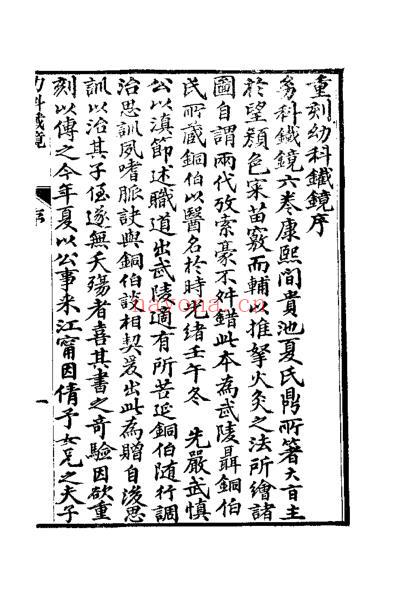 重刻幼科鐵鏡序
㓜科鐵鏡六卷康熙間貴池夏氏鼎所著大旨主
於望顏色審苗竅而輔以推拏火灸之法所繪諸
圖自謂兩代攷索豪不舛錯此本為武陵聶銅伯
氏所藏銅伯以醫名於時光緒壬午冬 先嚴武慎
公以滇節述職道出武陵適有所苦延銅伯隨行調
治思訓夙嗜脈訣與銅伯談相契爰出此為贈自後思
訓以治其子侄遂無夭殤者喜其書之奇驗因欲重
刻以傳之今年夏以公事来江甯因倩予女兄之夫子
幼科鐵鏡
序
一
nayona.cn